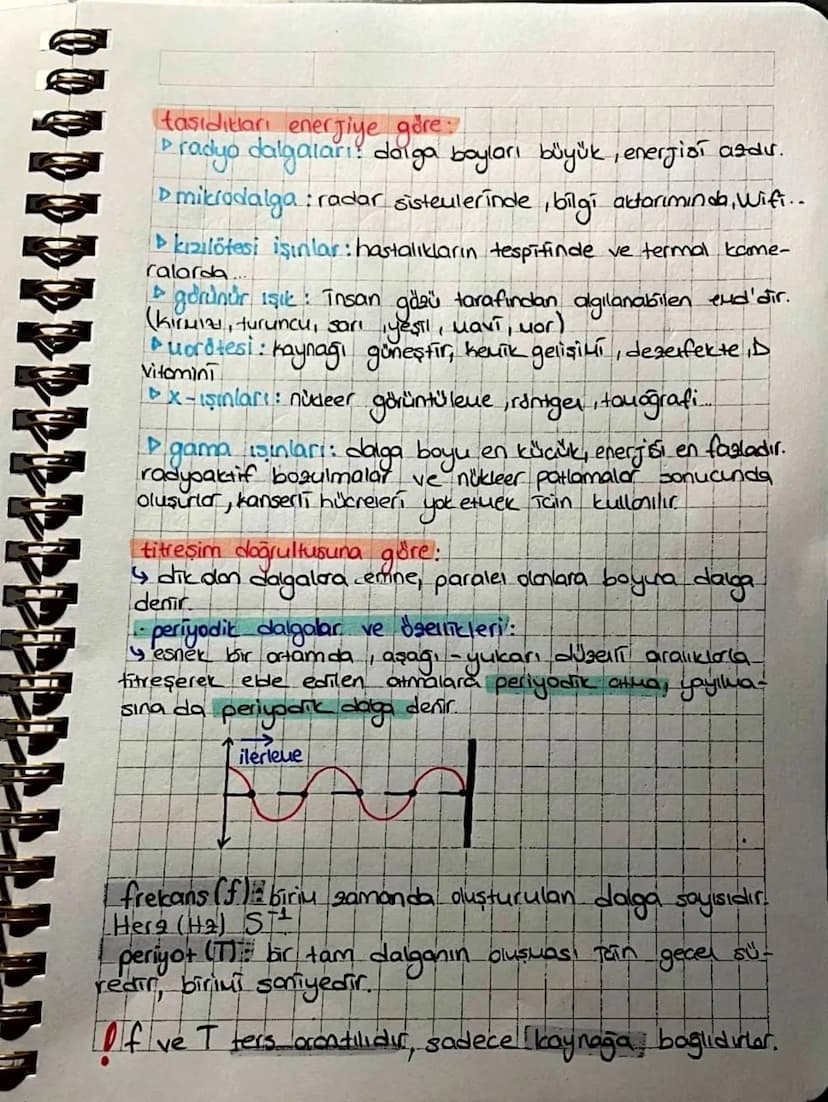 taşıdıkları enerjiye göre:
▷ radyo dalgaları: dalga boyları büyük, enerjisi azdır.
▷ mikrodalga: radar sistemlerinde, bilgi aktarımında, Wifi..
▷ kızılötesi ışınlar: hastalıkların tespitinde ve termal kame-
ralarda...
▷ görünür ışık: insan gözü tarafından algılanabilen emd'dir.
(kırmızı, turuncu, sarı, yeşil, mavi, mor)
▷ morötesi: kaynağı güneştir, kemik gelişimi, dezenfekte, D
vitamini
▷ x-ışınları: nükleer görüntüleme, röntgen, tomografi...
▷ gama ışınları: dalga boyu en küçük, enerjisi en fazladır.
radyoaktif bozulmalar ve nükleer patlamalar sonucunda
oluşurlar, kanserli hücreleri yok etmek için kullanılır.
titreşim doğrultusuna göre:
↳ dik olan dalgalara enine, paralel olanlara boyuna dalga
denir.
· periyodik dalgalar ve özellikleri:
↳ esnek bir ortamda, aşağı-yukarı düzenli aralıklarla
titreşerek elde edilen atmalara periyodik atma, yayılma-
sına da periyodik dalga denir.
ilerleme
frekans (f): birim zamanda oluşturulan dalga sayısıdır.
Herz (Hz) S⁻¹
periyot (T): bir tam dalganın oluşması için geçen sü-
redir, birimi saniyedir.
! f ve T ters orantılıdır, sadece kaynağa bağlıdırlar.